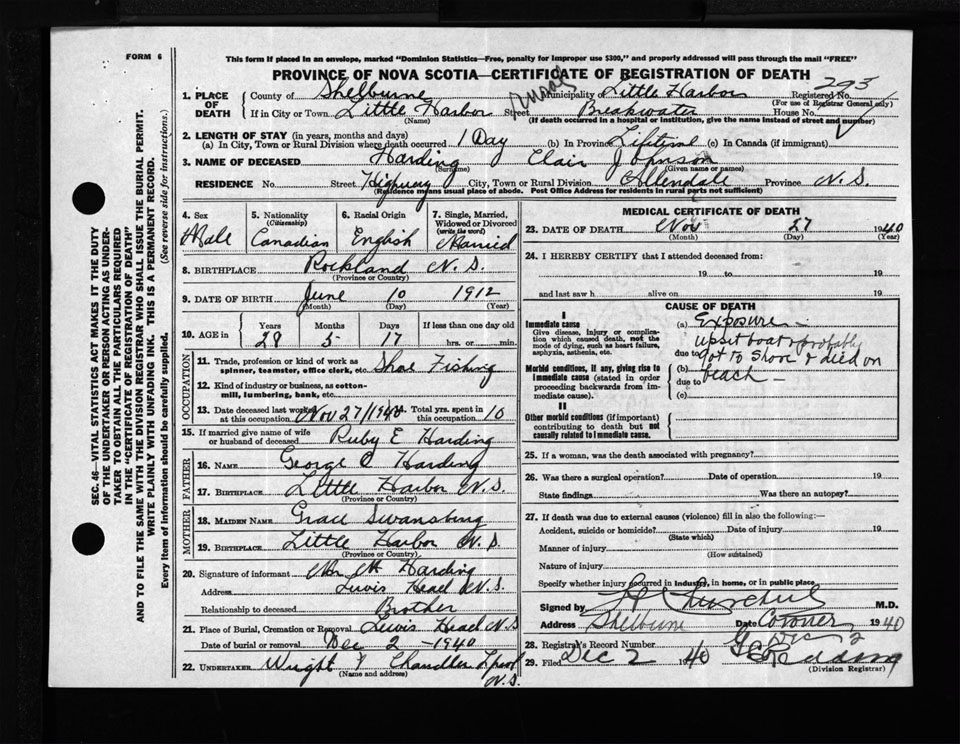 FORM 6
This form if placed in an envelope, marked "Dominion Statistics—Free, penalty for improper use $300," and properly addressed will pass through the mail "FREE"
PROVINCE OF NOVA SCOTIA—CERTIFICATE OF REGISTRATION OF DEATH
SEC. 46—VITAL STATISTICS ACT MAKES IT THE DUTY OF THE UNDERTAKER OR PERSON ACTING AS UNDERTAKER TO OBTAIN ALL THE PARTICULARS REQUIRED IN THE "CERTIFICATE OF REGISTRATION OF DEATH"
AND TO FILE THE SAME WITH THE DIVISION REGISTRAR WHO SHALL ISSUE THE BURIAL PERMIT.
WRITE PLAINLY WITH UNFADING INK. THIS IS A PERMANENT RECORD.
Every item of information should be carefully supplied. (See reverse side for instructions.)
1. PLACE OF DEATH County of Shelburne Rural Municipality of Little Harbor Registered No. 293
(For use of Registrar General only)
If in City or Town Little Harbor Street Breakwater House No.
(Name) (If death occurred in a hospital or institution, give the name instead of street and number)
2. LENGTH OF STAY (in years, months and days)
(a) In City, Town or Rural Division where death occurred 1 Day (b) In Province Lifetime (c) In Canada (if immigrant)
3. NAME OF DECEASED Harding Clair Johnson
(Surname) (Given name or names)
RESIDENCE No. Street Highway City, Town or Rural Division Allendale Province N.S.
(Residence means usual place of abode. Post Office Address for residents in rural parts not sufficient)
4. Sex Male
5. Nationality (Citizenship) Canadian
6. Racial Origin English
7. Single, Married, Widowed or Divorced (write the word) Married
8. BIRTHPLACE Rockland N.S.
(Province or Country)
9. DATE OF BIRTH June 10 1912
(Month) (Day) (Year)
10. AGE in Years 28 Months 5 Days 17 If less than one day old hrs. or min.
OCCUPATION
11. Trade, profession or kind of work as spinner, teamster, office clerk, etc. Shore Fishing
12. Kind of industry or business, as cotton-mill, lumbering, bank, etc.
13. Date deceased last worked at this occupation Nov 27/1940 Total yrs. spent in this occupation 10
15. If married give name of wife or husband of deceased Ruby E Harding
FATHER
16. NAME George C Harding
17. BIRTHPLACE Little Harbor N.S.
(Province or Country)
MOTHER
18. MAIDEN NAME Grace Swansburg
19. BIRTHPLACE Little Harbor N.S.
(Province or Country)
20. Signature of informant Harding
Address Lewis Head N.S.
Relationship to deceased Brother
21. Place of Burial, Cremation or Removal Lewis Head N.S
Date of burial or removal Dec 2 - 1940
22. UNDERTAKER Wright & Chandler Lpool N.S.
(Name and address)
MEDICAL CERTIFICATE OF DEATH
23. DATE OF DEATH Nov 27 1940
(Month) (Day) (Year)
24. I HEREBY CERTIFY that I attended deceased from:
19 to 19
and last saw h alive on 19
CAUSE OF DEATH
I
Immediate cause
Give disease, injury or complication which caused death, not the mode of dying, such as heart failure, asphyxia, asthenia, etc.
(a) Exposure —
upset boat & probably
due to got to shore & died on
Morbid conditions, if any, giving rise to immediate cause (stated in order proceeding backwards from immediate cause).
(b) beach —
due to
(c)
II
Other morbid conditions (if important) contributing to death but not causally related to immediate cause.
25. If a woman, was the death associated with pregnancy?
26. Was there a surgical operation? Date of operation 19
State findings Was there an autopsy?
27. If death was due to external causes (violence) fill in also the following:—
Accident, suicide or homicide? Date of injury 19
(State which)
Manner of injury
(How sustained)
Nature of injury
Specify whether injury occurred in industry, in home, or in public place
Signed by Churchill M.D.
Address Shelburne Date Coroner 1940
Dec 2
28. Registrar's Record Number
29. Filed Dec 2 1940
(Division Registrar)